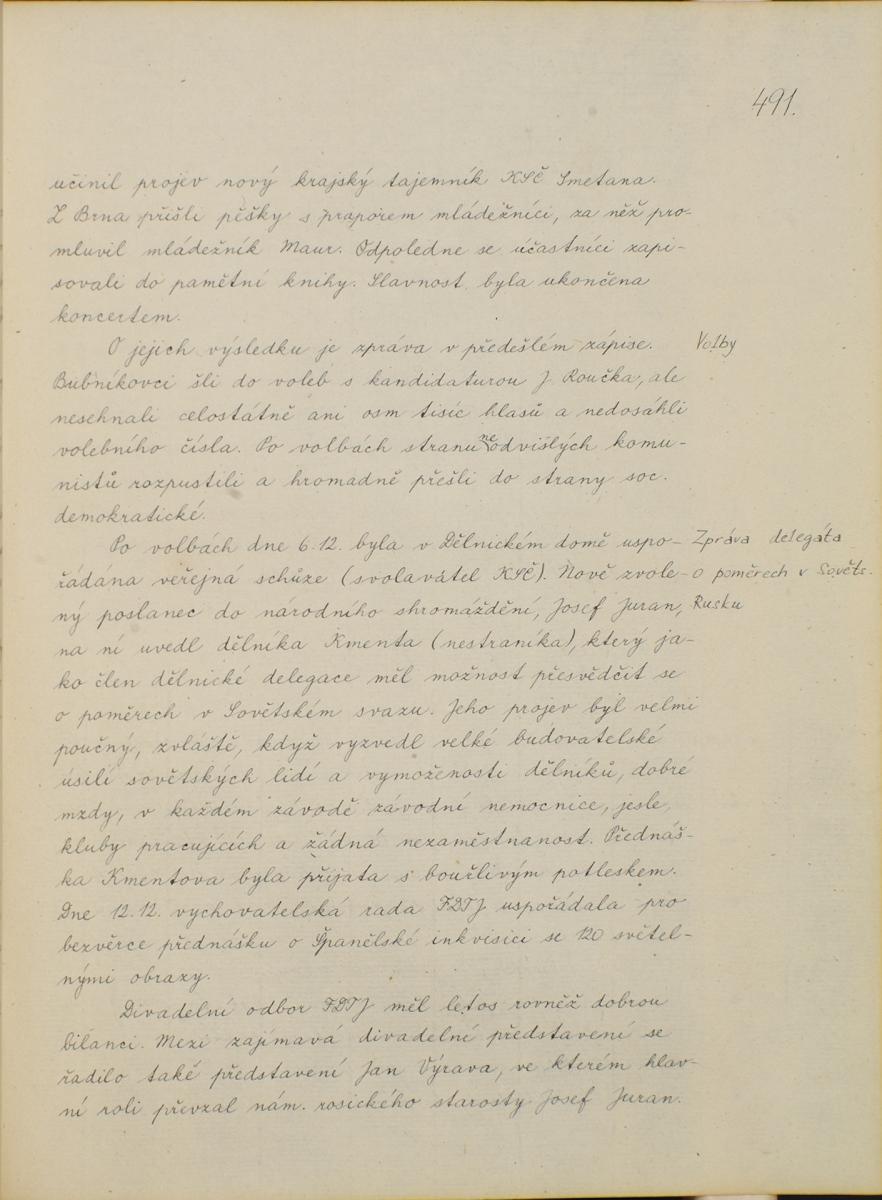 491.
učinil projev nový krajský tajemník KSČ Smetana.
Z Brna přišli pěšky s praporem mládežníci, za něž pro-
mluvil mládežník Maur. Odpoledne se účastníci zapi-
sovali do pamětní knihy. Slavnost byla ukončena
koncertem.
O jejich výsledku je zpráva v předešlém zápise.
Volby
Bubníkovci šli do voleb s kandidaturou J. Roučka, ale
nesehnali celostátně ani osm tisíc hlasů a nedosáhli
volebního čísla. Po volbách stranu neodvislých komu-
nistů rozpustili a hromadně přešli do strany soc.
demokratické.
Po volbách dne 6.12. byla v Dělnickém domě uspo-
řádána veřejná schůze (svolavatel KSČ). Nově zvole-
ný poslanec do národního shromáždění, Josef Juran,
Zpráva delegáta
o poměrech v Sověts.
Rusku
na ní uvedl dělníka Kmenta (nestraníka), který ja-
ko člen dělnické delegace měl možnost přesvědčit se
o poměrech v Sovětském svazu. Jeho projev byl velmi
poučný, zvláště, když vyzvedl velké budovatelské
úsilí sovětských lidí a vymoženosti dělníků, dobré
mzdy, v každém závodě závodní nemocnice, jesle,
kluby pracujících a žádná nezaměstnanost. Přednáš-
ka Kmentova byla přijata s bouřlivým potleskem.
Dne 12.12. vychovatelská rada FDTJ uspořádala pro
bezvěrce přednášku o Španělské inkvisici se 120 světel-
nými obrazy.
Divadelní odbor FDTJ měl letos rovněž dobrou
bilanci. Mezi zajímavá divadelní představení se
řadilo také představení Jan Výrava, ve kterém hlav-
ní roli převzal nám. rosického starosty Josef Juran.